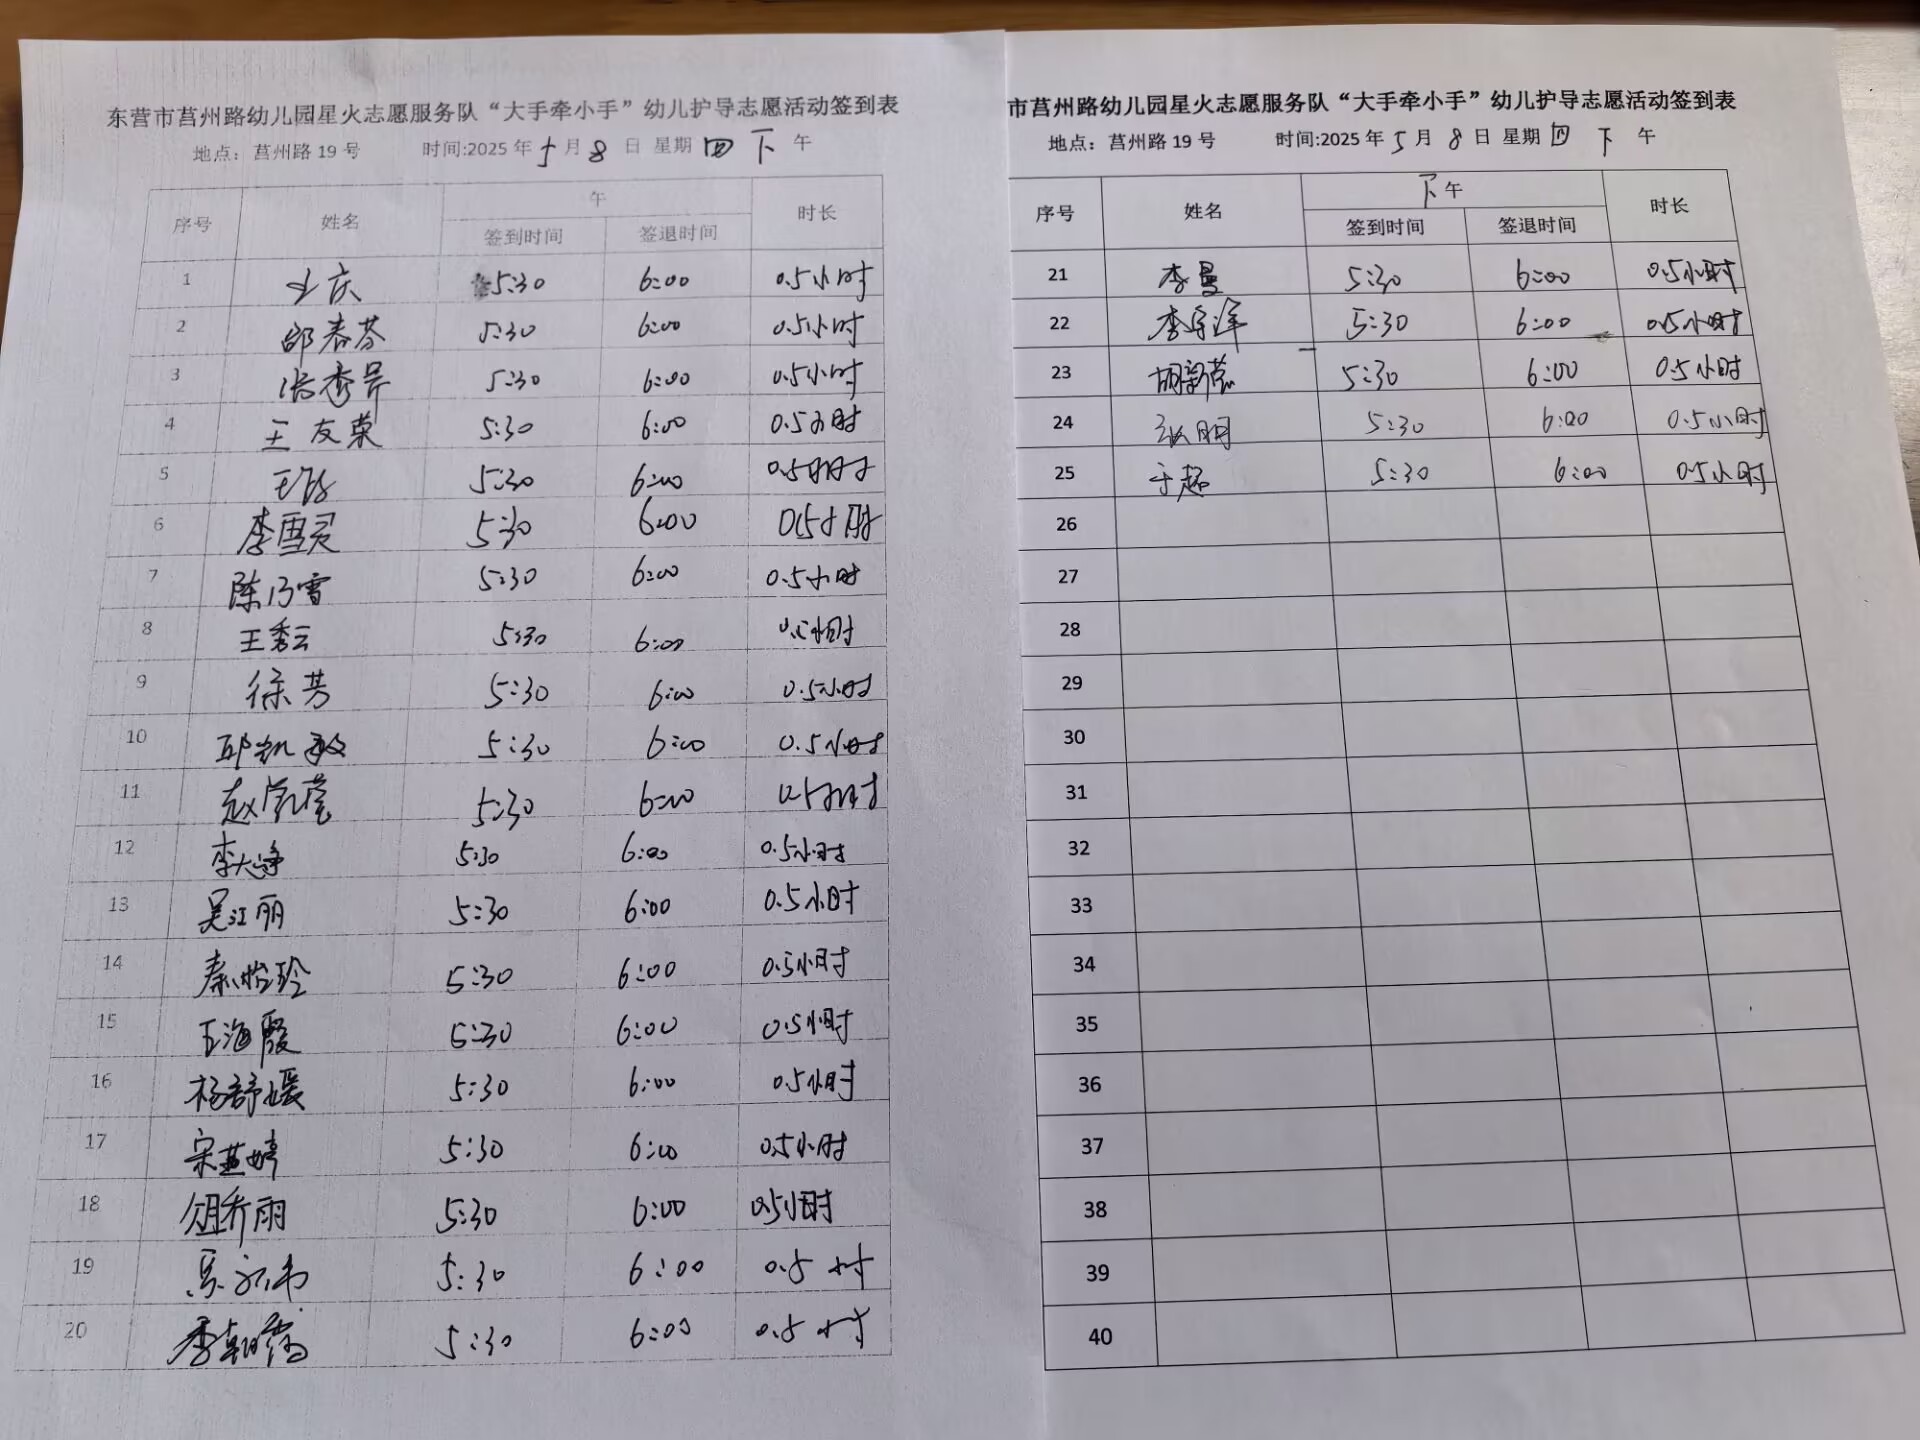 东营市莒州路幼儿园星火志愿服务队“大手牵小手”幼儿护导志愿活动签到表
地点：莒州路19号 时间:2025年5月8日 星期四 下午
序号 姓名 午 时长
签到时间 签退时间
1 5:30 6:00 0.5小时
2 邵春芬 5:30 6:00 0.5小时
3 张秀昇 5:30 6:00 0.5小时
4 王友荣 5:30 6:00 0.5小时
5 5:30 6:00 0.5小时
6 李雪灵 5:30 6:00 0.5小时
7 陈乃雪 5:30 6:00 0.5小时
8 王秀云 5:30 6:00 0.5小时
9 徐芳 5:30 6:00 0.5小时
10 邱凯敏 5:30 6:00 0.5小时
11 5:30 6:00 0.5小时
12 5:30 6:00 0.5小时
13 吴江丽 5:30 6:00 0.5小时
14 秦怡玲 5:30 6:00 0.5小时
15 王海霞 5:30 6:00 0.5小时
16 杨舒媛 5:30 6:00 0.5小时
17 宋燕婷 5:30 6:00 0.5小时
18 俎乔雨 5:30 6:00 0.5小时
19 5:30 6:00 0.5小时
20 5:30 6:00 0.5小时
市莒州路幼儿园星火志愿服务队“大手牵小手”幼儿护导志愿活动签到表
地点：莒州路19号 时间:2025年5月8日 星期四 下午
序号 姓名 下午 时长
签到时间 签退时间
21 李曼 5:30 6:00 0.5小时
22 李宗洋 5:30 6:00 0.5小时
23 5:30 6:00 0.5小时
24 张明 5:30 6:00 0.5小时
25 于超 5:30 6:00 0.5小时
26
27
28
29
30
31
32
33
34
35
36
37
38
39
40